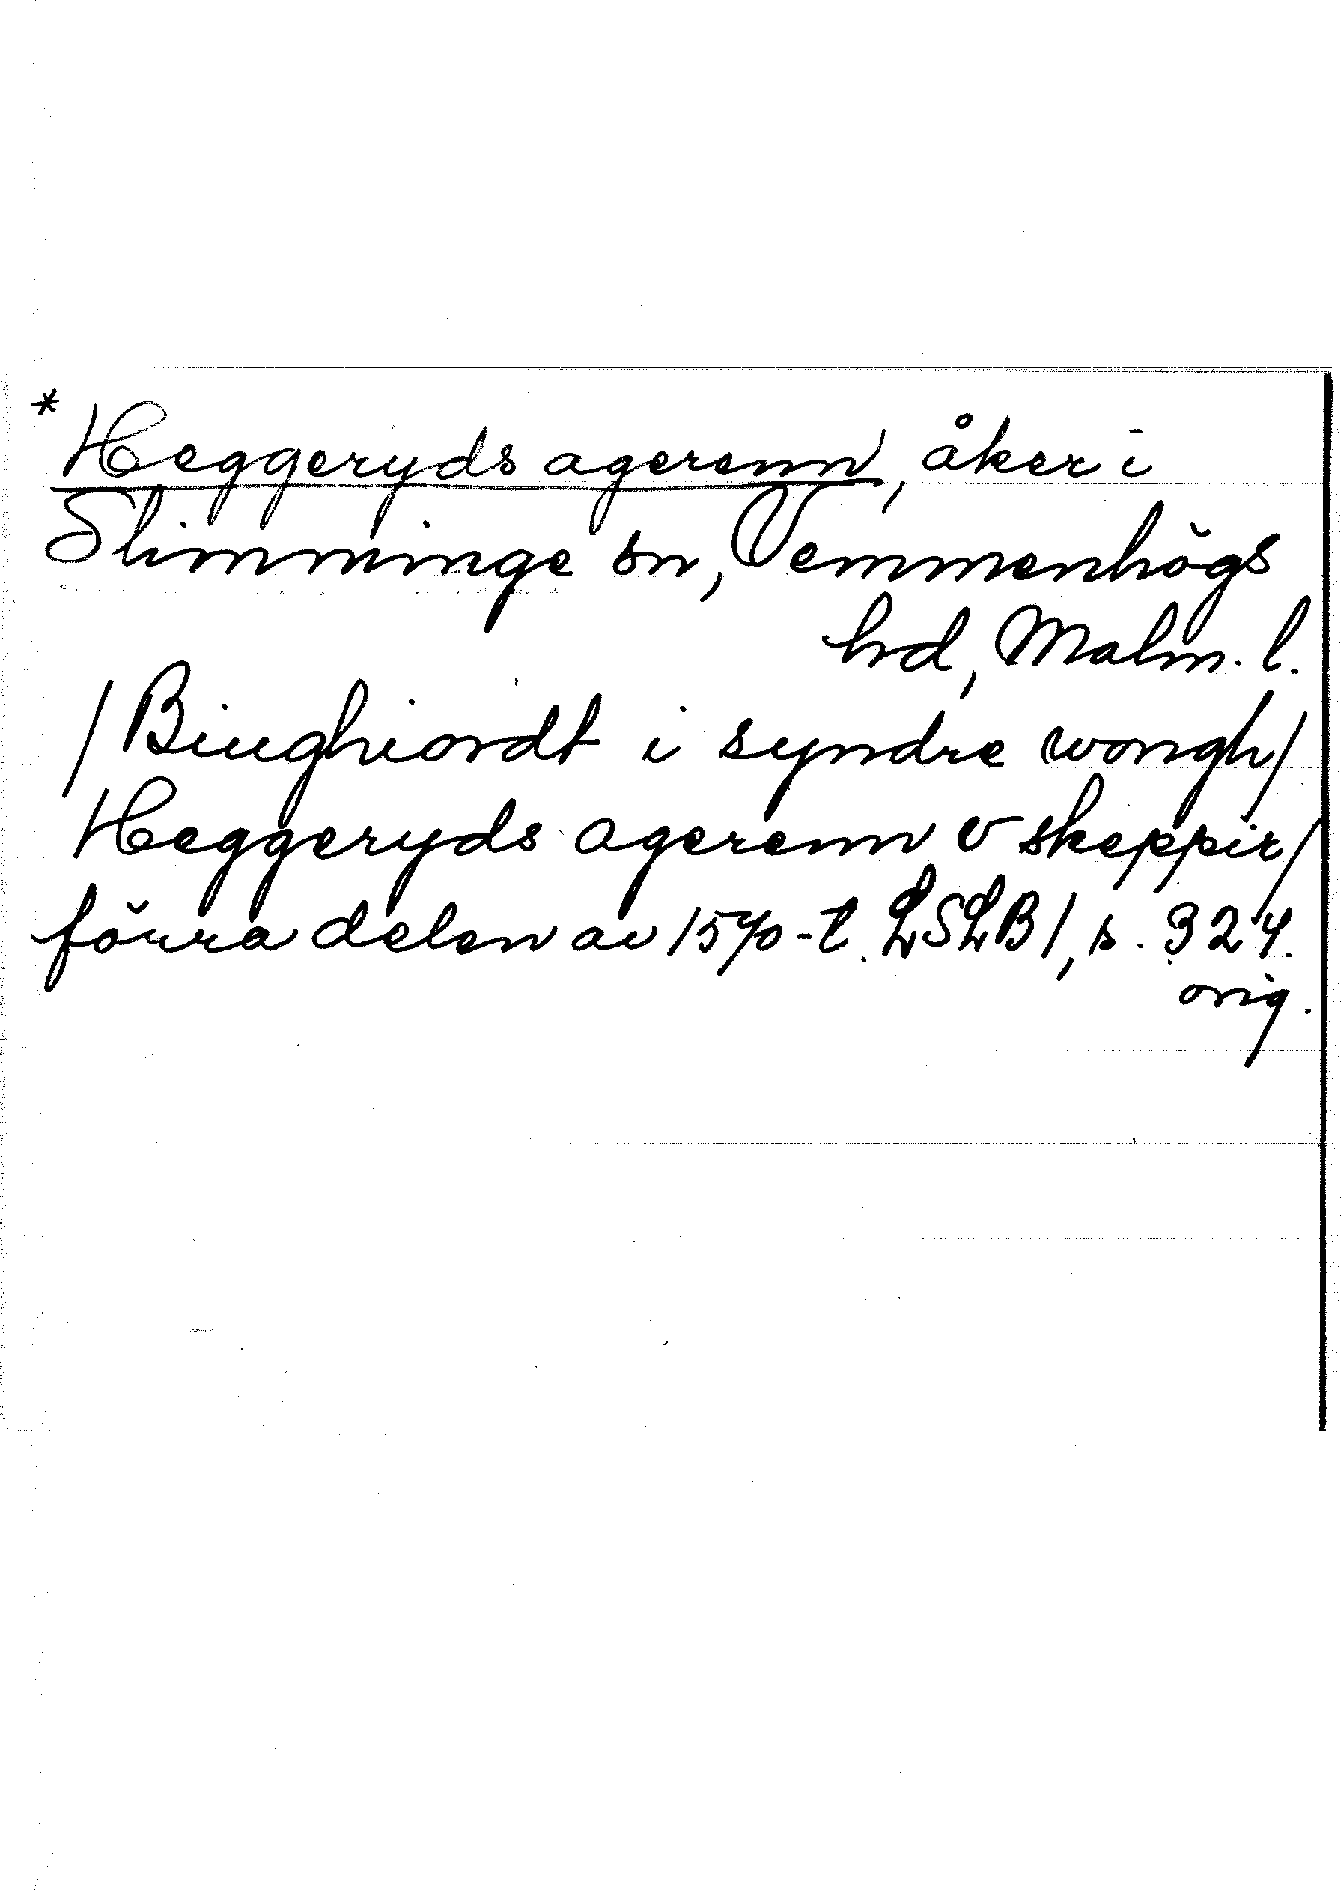 * Heggeryds agerenn, åker i
Slimminge sn, Vemmenhögs
hd, Malm. l.
/Biughiordt i syndre wongh/
Heggeryds agerenn v skeppir/
förra delen av 1570-t. LSLB 1, s. 324.
orig.